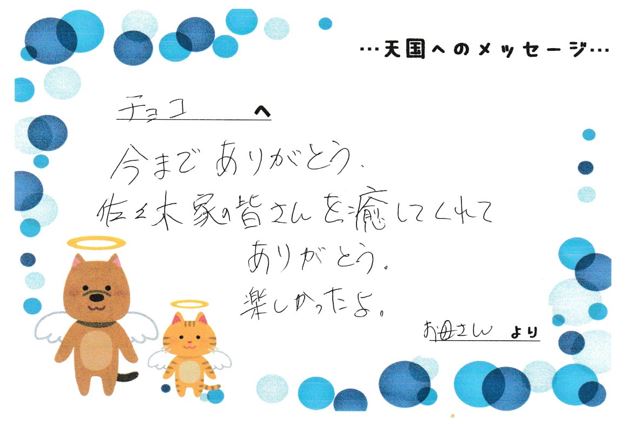 …天国へのメッセージ…
チョコ へ
今まで ありがとう.
佐々木家の皆さんを癒してくれて
ありがとう。
楽しかったよ。
お母さん より